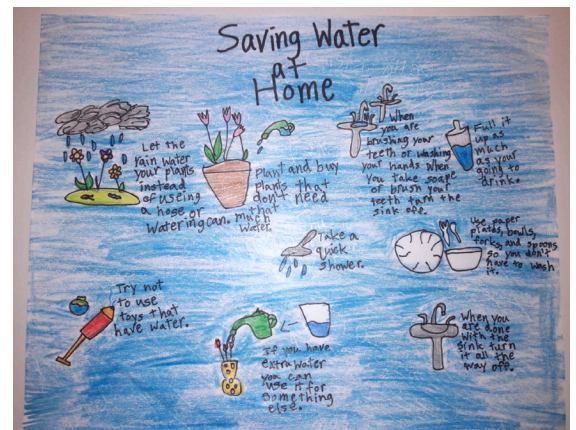 Saving Water
at
Home
Let the
rain water
your plants
instead
of useing
a hose or
watering can.
Plant and buy
plants that
don't need
that
much
water.
When
you are
brushing your
teeth or washing
your hands when
you take soape
or brush your
teeth turn the
sink off.
Full it
up as
much
as your
going to
drink.
Take a
quick
shower.
Use paper
plates, bowls,
forks, and spoons
so you don't
have to wash
it.
Try not
to use
toys that
have water.
If you have
extra water
you can
use it for
something
else.
When you
are done
with the
sink turn
it all the
way off.